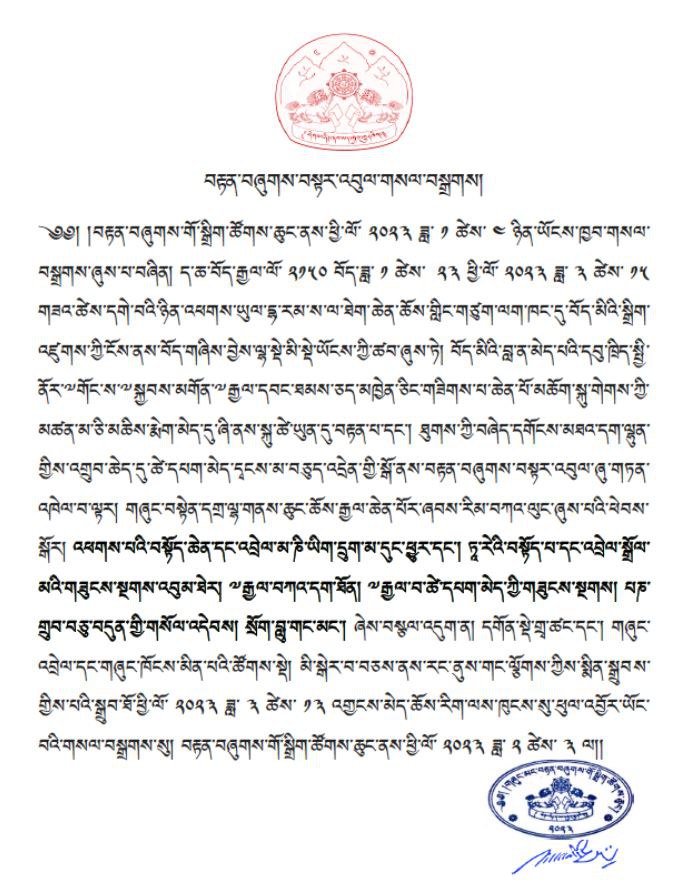 བརྟན་བཞུགས་བསྟར་འབུལ་གསལ་བསྒྲགས།
༄༅། །བརྟན་བཞུགས་གོ་སྒྲིག་ཚོགས་ཆུང་ནས་ཕྱི་ལོ་ ༢༠༢༣ ཟླ་ ༡ ཚེས་ ༤ ཉིན་ཡོངས་ཁྱབ་གསལ་
བསྒྲགས་ཞུས་པ་བཞིན། ད་ཆ་བོད་རྒྱལ་ལོ་ ༢༡༥༠ བོད་ཟླ་ ༡ ཚེས་ ༢༣ ཕྱི་ལོ་ ༢༠༢༣ ཟླ་ ༣ ཚེས་ ༡༥
གཟའ་ཚེས་དགེ་བའི་ཉིན་འཕགས་ཡུལ་དྷ་རམ་ས་ལ་ཐེག་ཆེན་ཆོས་གླིང་གཙུག་ལག་ཁང་དུ་བོད་མིའི་སྒྲིག་
འཛུགས་ཀྱི་ངོས་ནས་བོད་གཞིས་བྱེས་ལྷ་སྡེ་མི་སྡེ་ཡོངས་ཀྱི་ཚབ་ཞུས་ཏེ། བོད་མིའི་བླ་ན་མེད་པའི་དབུ་ཁྲིད་སྤྱི་
ནོར་༸གོང་ས་༸སྐྱབས་མགོན་༸རྒྱལ་དབང་ཐམས་ཅད་མཁྱེན་ཅིང་གཟིགས་པ་ཆེན་པོ་མཆོག་སྐུ་གེགས་ཀྱི་
མཚན་མ་ཅི་མཆིས་རྨེག་མེད་དུ་ཞི་ནས་སྐུ་ཚེ་ཡུན་དུ་བརྟན་པ་དང་། ཐུགས་ཀྱི་བཞེད་དགོངས་མཐའ་དག་ལྷུན་
གྱིས་འགྲུབ་ཆེད་དུ་ཚེ་དཔག་མེད་དྭངས་མ་བཅུད་འདྲེན་གྱི་སྒོ་ནས་བརྟན་བཞུགས་བསྟར་འབུལ་ཞུ་གཏན་
འཁེལ་བ་ལྟར། གཞུང་བསྟེན་དགྲ་ལྷ་གནས་ཆུང་ཆོས་རྒྱལ་ཆེན་པོར་ཞབས་རིམ་བཀའ་ལུང་ཞུས་པའི་ཕེབས་
སྒོར། འཕགས་པའི་བསྟོད་ཆེན་དང་འབྲེལ་མ་ཎི་ཡིག་དྲུག་མ་དུང་ཕྱུར་དང་། ཏཱ་རེའི་བསྟོད་པ་དང་འབྲེལ་སྒྲོལ་
མའི་གཟུངས་སྔགས་འབུམ་ཐེར། ༸རྒྱལ་བཀའ་དག་ཐོན། ༸རྒྱལ་བ་ཚེ་དཔག་མེད་ཀྱི་གཟུངས་སྔགས། པཎ་
གྲུབ་བཅུ་བདུན་གྱི་གསོལ་འདེབས། སྲོག་བླུ་གང་མང་། ཞེས་བསྩལ་འདུག་ན། དགོན་སྡེ་གྲྭ་ཚང་དང་། གཞུང་
འབྲེལ་དང་གཞུང་ཁོངས་མིན་པའི་ཚོགས་སྡེ། མི་སྒེར་བ་བཅས་ནས་རང་ནུས་གང་ལྕོགས་ཀྱིས་སྨིན་སྒྲུབས་
གྱིས་པའི་སྒྲུབ་ཐོ་ཕྱི་ལོ་ ༢༠༢༣ ཟླ་ ༣ ཚེས་ ༡༣ འགྱངས་མེད་ཆོས་རིག་ལས་ཁུངས་སུ་ཕུལ་འབྱོར་ཡོང་
བའི་གསལ་བསྒྲགས་སུ། བརྟན་བཞུགས་གོ་སྒྲིག་ཚོགས་ཆུང་ནས་ཕྱི་ལོ་ ༢༠༢༣ ཟླ་ ༢ ཚེས་ ༣ ལ།།
༄༅། །གཞུང་མང་བརྟན་བཞུགས་གོ་སྒྲིག་ཚོགས་ཆུང་།
༢༠༢༣